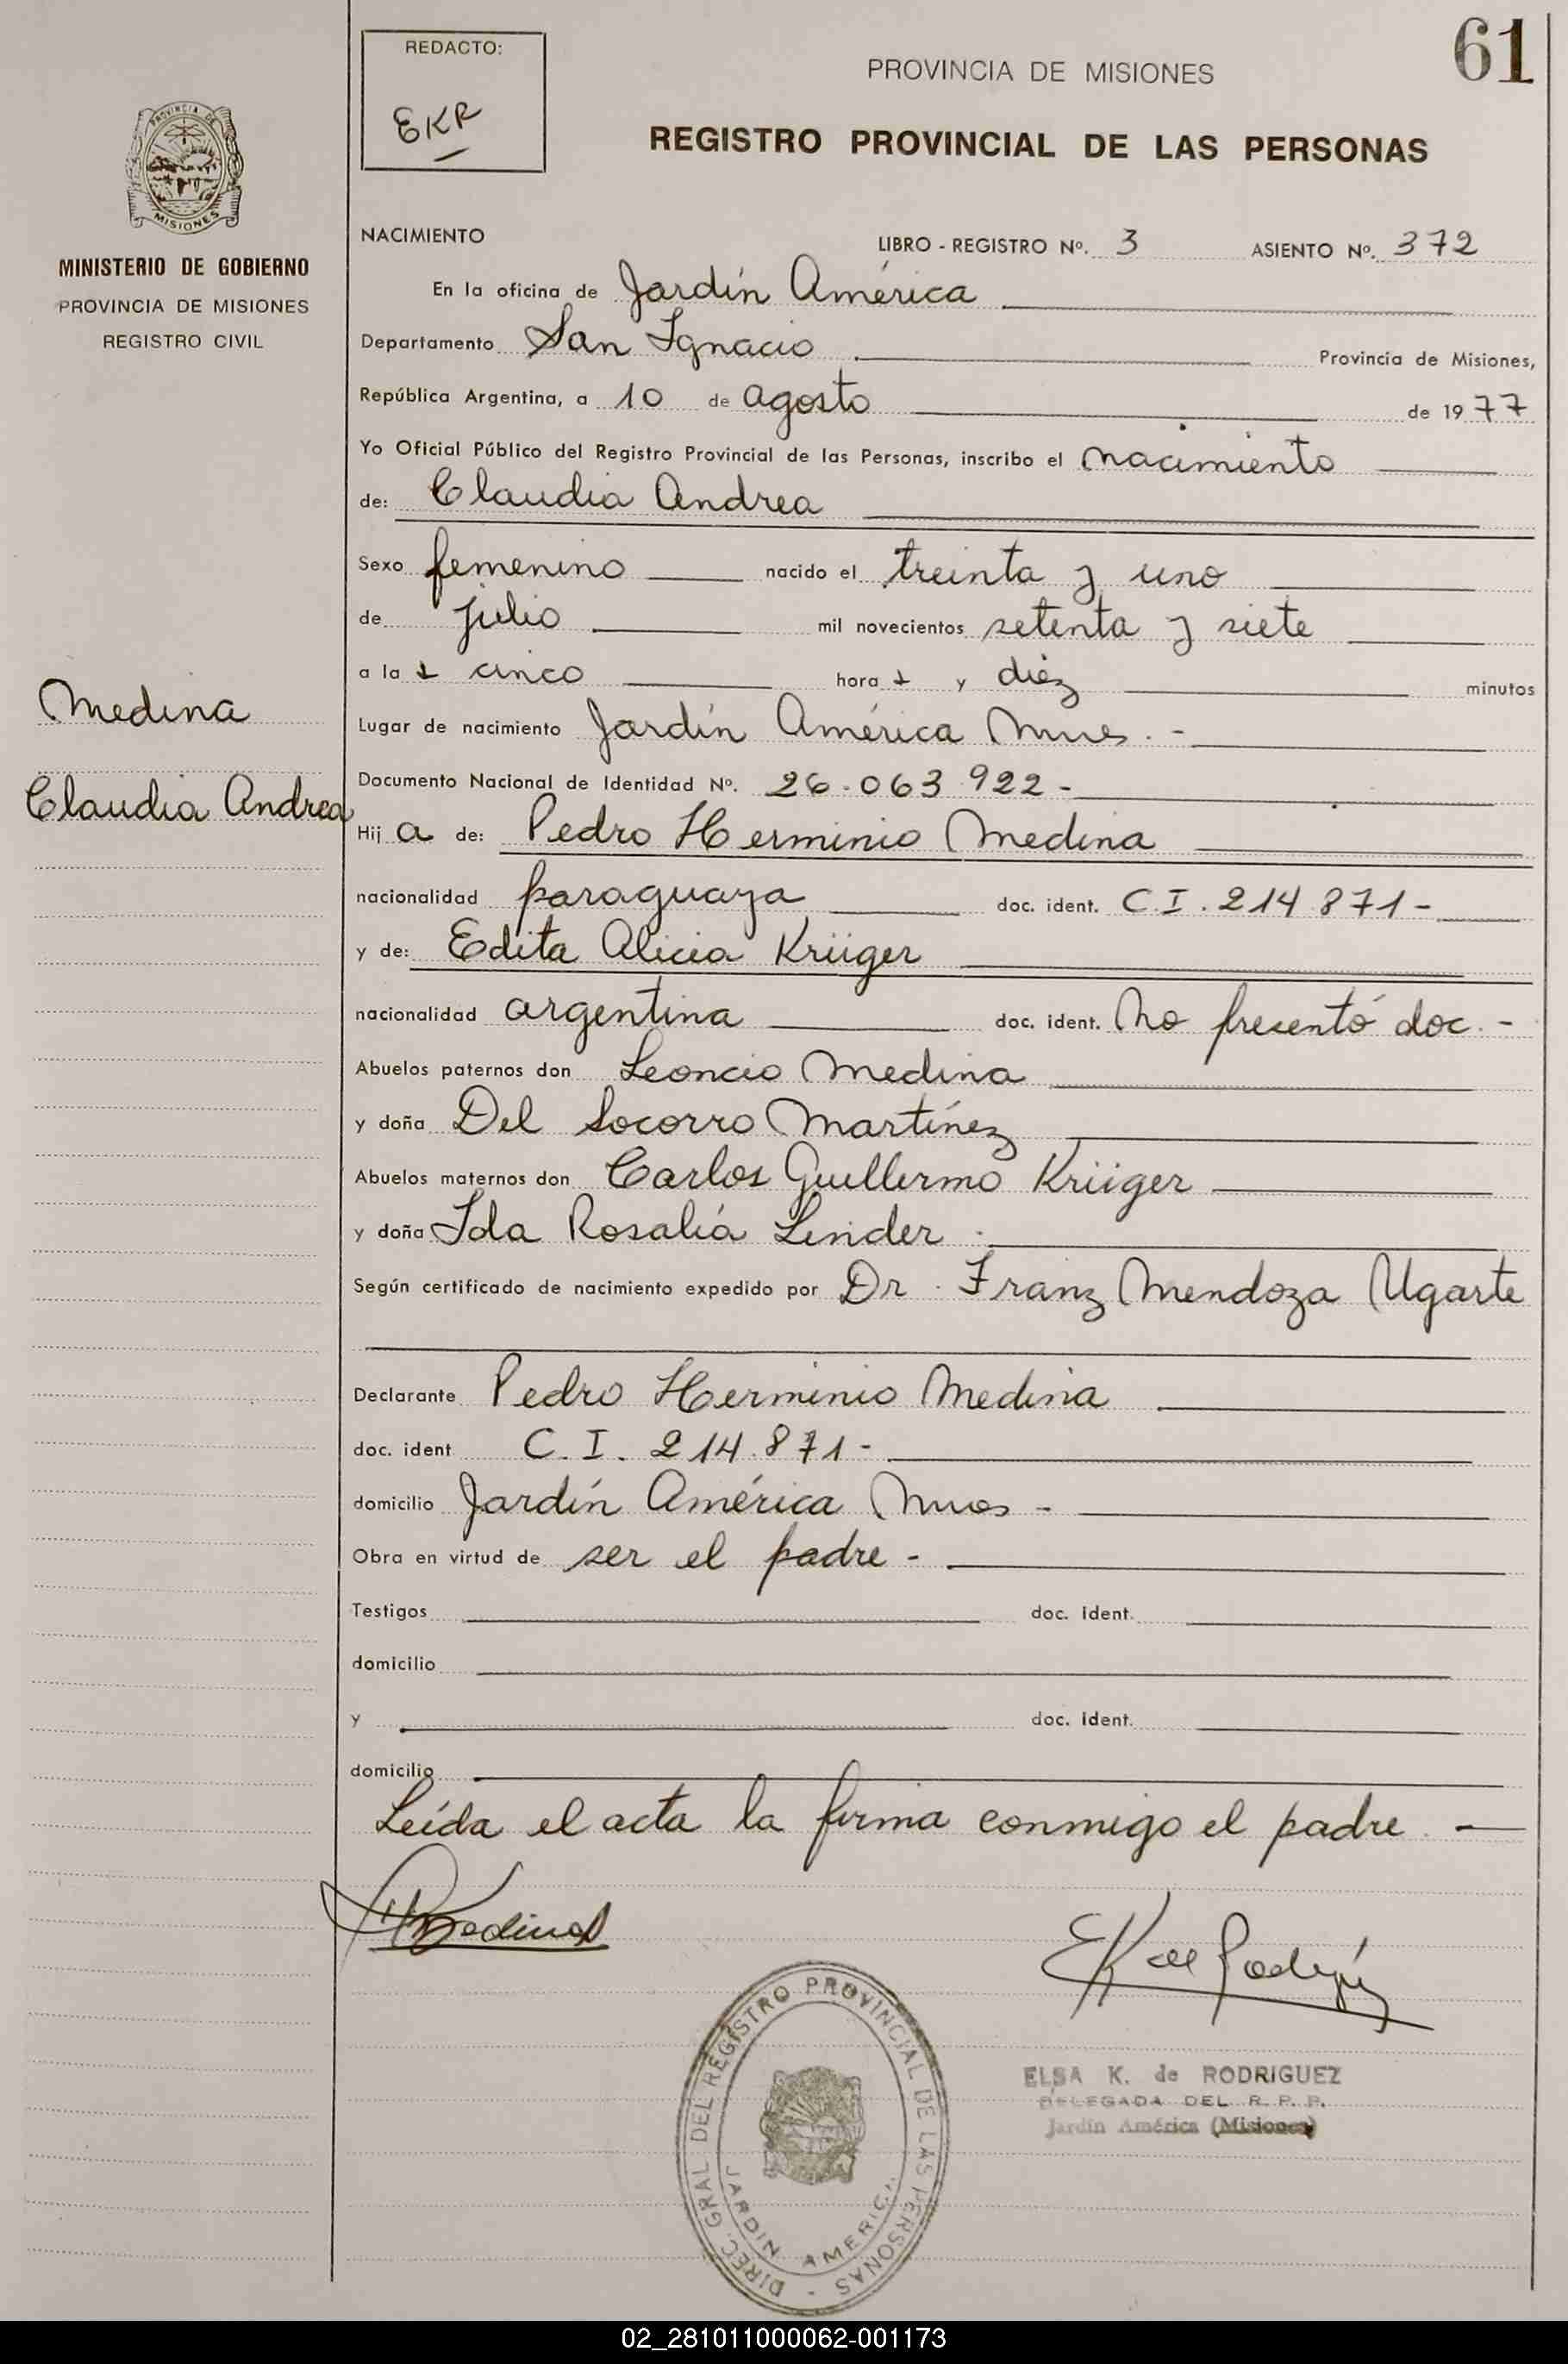 61
REDACTO:
EKR
PROVINCIA DE MISIONES
REGISTRO PROVINCIAL DE LAS PERSONAS
PROVINCIA DE
MISIONES
MINISTERIO DE GOBIERNO
PROVINCIA DE MISIONES
REGISTRO CIVIL
Medina
Claudia Andrea
NACIMIENTO LIBRO - REGISTRO Nº. 3 ASIENTO Nº. 372
En la oficina de Jardín América
Departamento San Ignacio Provincia de Misiones,
República Argentina, a 10 de agosto de 1977
Yo Oficial Público del Registro Provincial de las Personas, inscribo el nacimiento
de: Claudia Andrea
Sexo femenino nacido el treinta y uno
de julio mil novecientos setenta y siete
a la s cinco hora s y diéz minutos
Lugar de nacimiento Jardín América Mnes. -
Documento Nacional de Identidad Nº. 26.063.922-
Hij a de: Pedro Herminio Medina
nacionalidad paraguaya doc. ident. C.I. 214.871-
y de: Edita Alicia Krüger
nacionalidad argentina doc. ident. No presentó doc. -
Abuelos paternos don Leoncio Medina
y doña Del Socorro Martínez
Abuelos maternos don Carlos Guillermo Krüger
y doña Ida Rosalía Linder
Según certificado de nacimiento expedido por Dr. Franz Mendoza Ugarte
Declarante Pedro Herminio Medina
doc. ident C.I. 214.871-
domicilio Jardín América Mnes -
Obra en virtud de ser el padre -
Testigos doc. ident.
domicilio
y doc. ident.
domicilio
Leída el acta la firma conmigo el padre. —
ELSA K. de RODRIGUEZ
DELEGADA DEL R. P. P.
Jardín América (Misiones)
DIREC. GRAL. DEL REGISTRO PROVINCIAL DE LAS PERSONAS -
JARDIN AMERICA
02_281011000062-001173